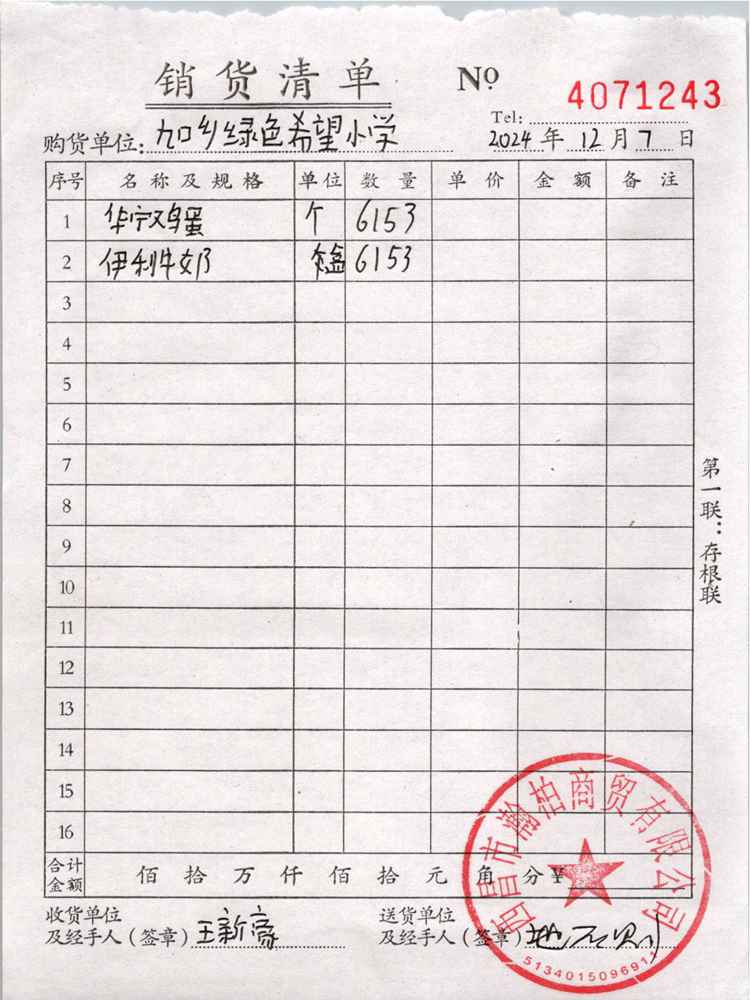 销货清单 No 4071243
Tel:
购货单位: 九口乡绿色希望小学 2024 年 12 月 7 日
序号 名称及规格 单位 数量 单价 金额 备注
1 华宁鸡蛋 个 6153
2 伊利牛奶 盒 6153
3
4
5
6
7
8
9
10
11
12
13
14
15
16
合计金额 佰 拾 万 仟 佰 拾 元 角 分 ¥
收货单位 送货单位
及经手人(签章) 王新 及经手人(签章)
第一联:存根联
西昌市瀚柏商贸有限公司
5134015096911